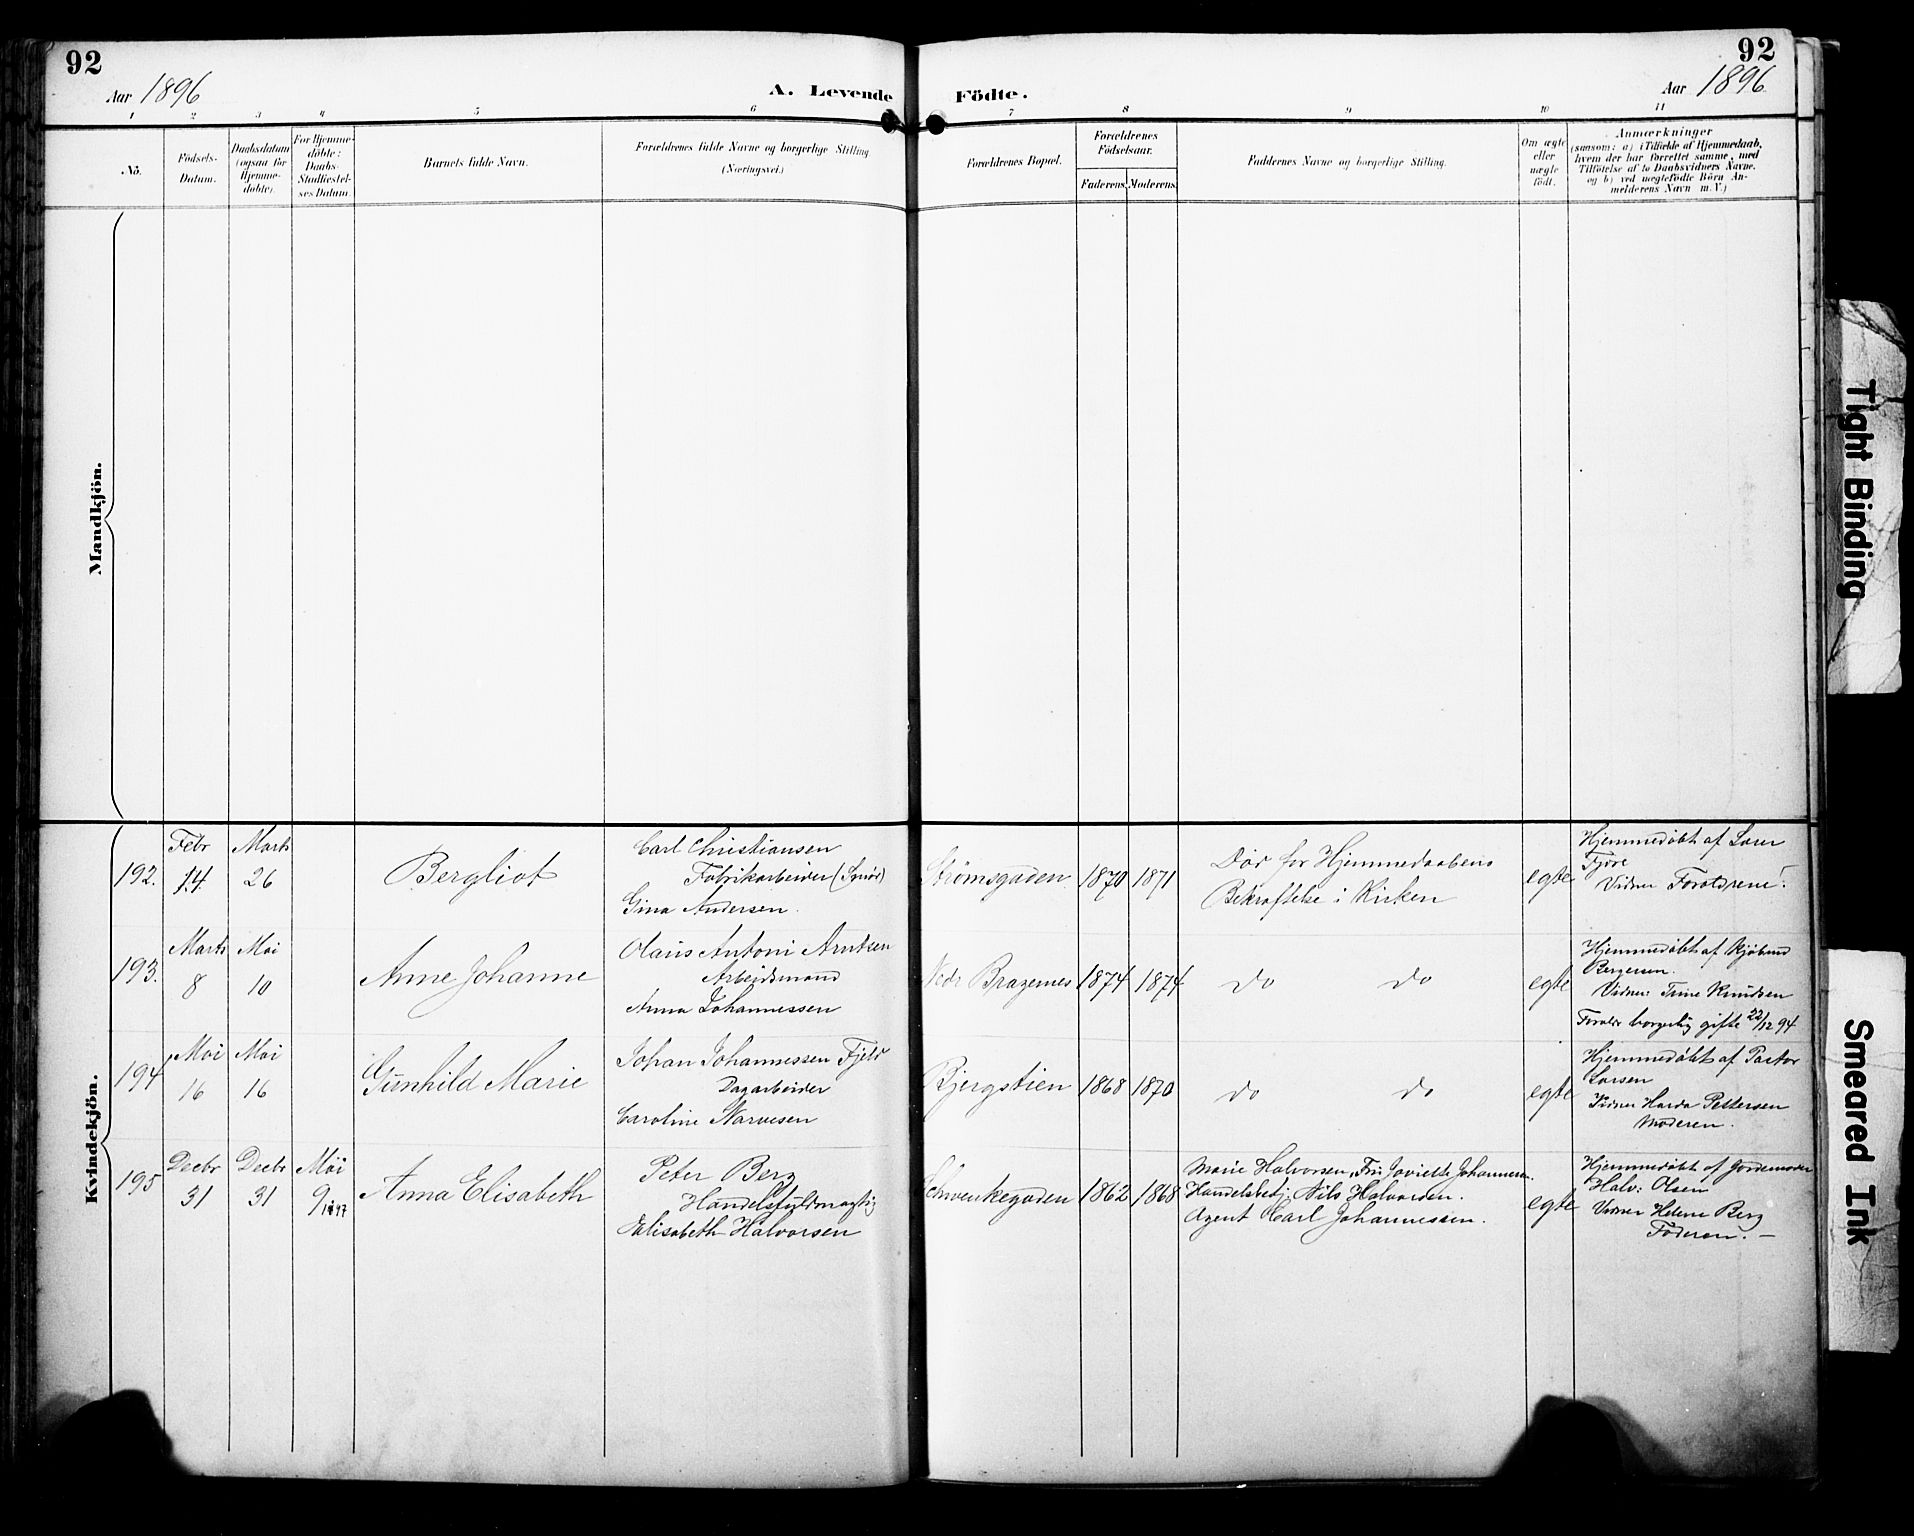 92
Aar 1896
A. Levende
1
2
3
4
5
6
No.
Födsels-
Datum.
Daabsdatum
(ogsaa for
Hjemme-
døbte).
For Hjemme-
döbte:
Daabs-
Stadfæstel-
ses Datum.
Barnets fulde Navn.
Forældrenes fulde Navne og borgerlige Stilling
(Næringsvei.)
Mandkjön.
Kvindekjön.
192.
Febr
14
Marts
26
Bergliot
Carl Christiansen
Fabrikarbeider
Gina Andersen.
193.
Marts
8
Mai
10
Anne Johanne
Olaus Antoni Arntzen
Arbeidsmand
Anna Johannessen
194
Mai
16
Mai
16
Gunhild Marie
Johan Johannessen Fjeld
Dagarbeider
Caroline Narvesen
195
Decbr
31
Decbr
31
Mai
9 1897
Anna Elisabeth
Peter Berg
Handelsfuldmægtig
Elisabeth Halvorsen
92
Aar 1896
Födte.
7
8
9
10
11
Forældrenes Bopæl.
Forældrenes
Födselsaar.
Faderens.
Moderens.
Faddernes Navne og borgerlige Stilling.
Om ægte
eller
uægte
födt.
Anmærkninger
(saasom: a) i Tilfælde af Hjemmedaab,
hvem der har forrettet samme, med
Tilföielse af to Daabsvidners Navne,
og b) ved uægtefödte Börn An-
melderens Navn m. V.)
Strömsgaden
1870
1871
Død før Hjemmedaabens
Bekræftelse i Kirken
egte
Hjemmedøbt af
Vidner Forældrene.
Nedr Bragernes
1874
1874
do do
egte
Hjemmedøbt af
Bergersen.
Vidner: Trine Knudsen
Foreldr borgerlig gifte 22/12 94
Bjergstien
1868
1870
do do
egte
Hjemmedøbt af Pastor
Larsen
Vidner Pettersen
Moderen.
Schwenkegaden
1862
1868
Marie Halvorsen, Johannessen.
Handelsbetj. Nils Halvorsen.
Agent Carl Johannessen.
egte
Hjemmedøbt af Jordemoder
Halv: Olsen
Vidner Helene Berg
Faderen. —
Tight Binding
Smeared Ink